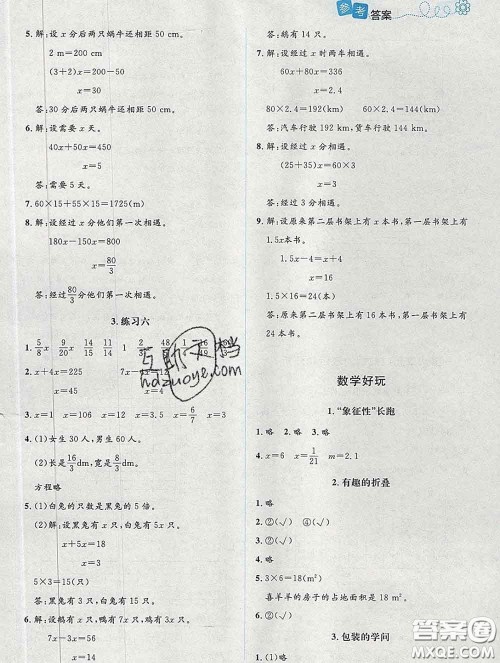 参考答案
5. 解：设x分后两只蜗牛还相距50 cm。
2x=200-50
(3+2)x=200-50
x=30
答：30分后两只蜗牛还相距50 cm。
6. 解：设需要x天。
40x+50x=450
x=5
答：需要5天。
7. 60×15+55×15=1725(m)
8. 解：设经过x分他们第一次相遇。
180x-150x=800
x=80/3
答：经过80/3分他们第一次相遇。
3. 练习六
3. x=1 x=12 x=3 x=6/7 x=3
4. (1)女生30人 男生60人
方程略
5. (1)白兔的只数是黑兔的5倍。
(2)解：设黑兔有x只，白兔有5x只。
x+5x=18
x=3
5×3=15(只)
答：黑兔有3只，白兔有15只。
6. 解：设鹤有x只，鸡有7x只，鸭有3x只。
7x-3x=56
x=14
答：鹤有14只。
7. 解：设经过x时两车相遇。
60x+80x=336
x=2.4
80×2.4=192(km) 60×2.4=144(km)
答：汽车行驶192 km，货车行驶144 km。
8. 解：设经过x分相遇。
(25+35)x=60×3
x=3
答：经过3分相遇。
9. 解：设原来第二层书架上有x本书，第一层书架上有
1.5x本书。
1.5x-4=x+4
x=16
1.5×16=24(本)
答：原来第二层书架上有16本书，第一层书架上
有24本书。
数学好玩
1. “象征性”长跑
1. 略 2. 略 3. 略
4. x=6 x=1/21 m=2
2. 有趣的折叠
1. 略
2. ②(√) ④(√)
3. ②(√)
4. 略
5. 3×6=18(m²)
喜羊羊的房子的占地面积是18 m²。
3. 包装的学问
互助文档
hdzuoye.com
答案圈
MXQE.COM